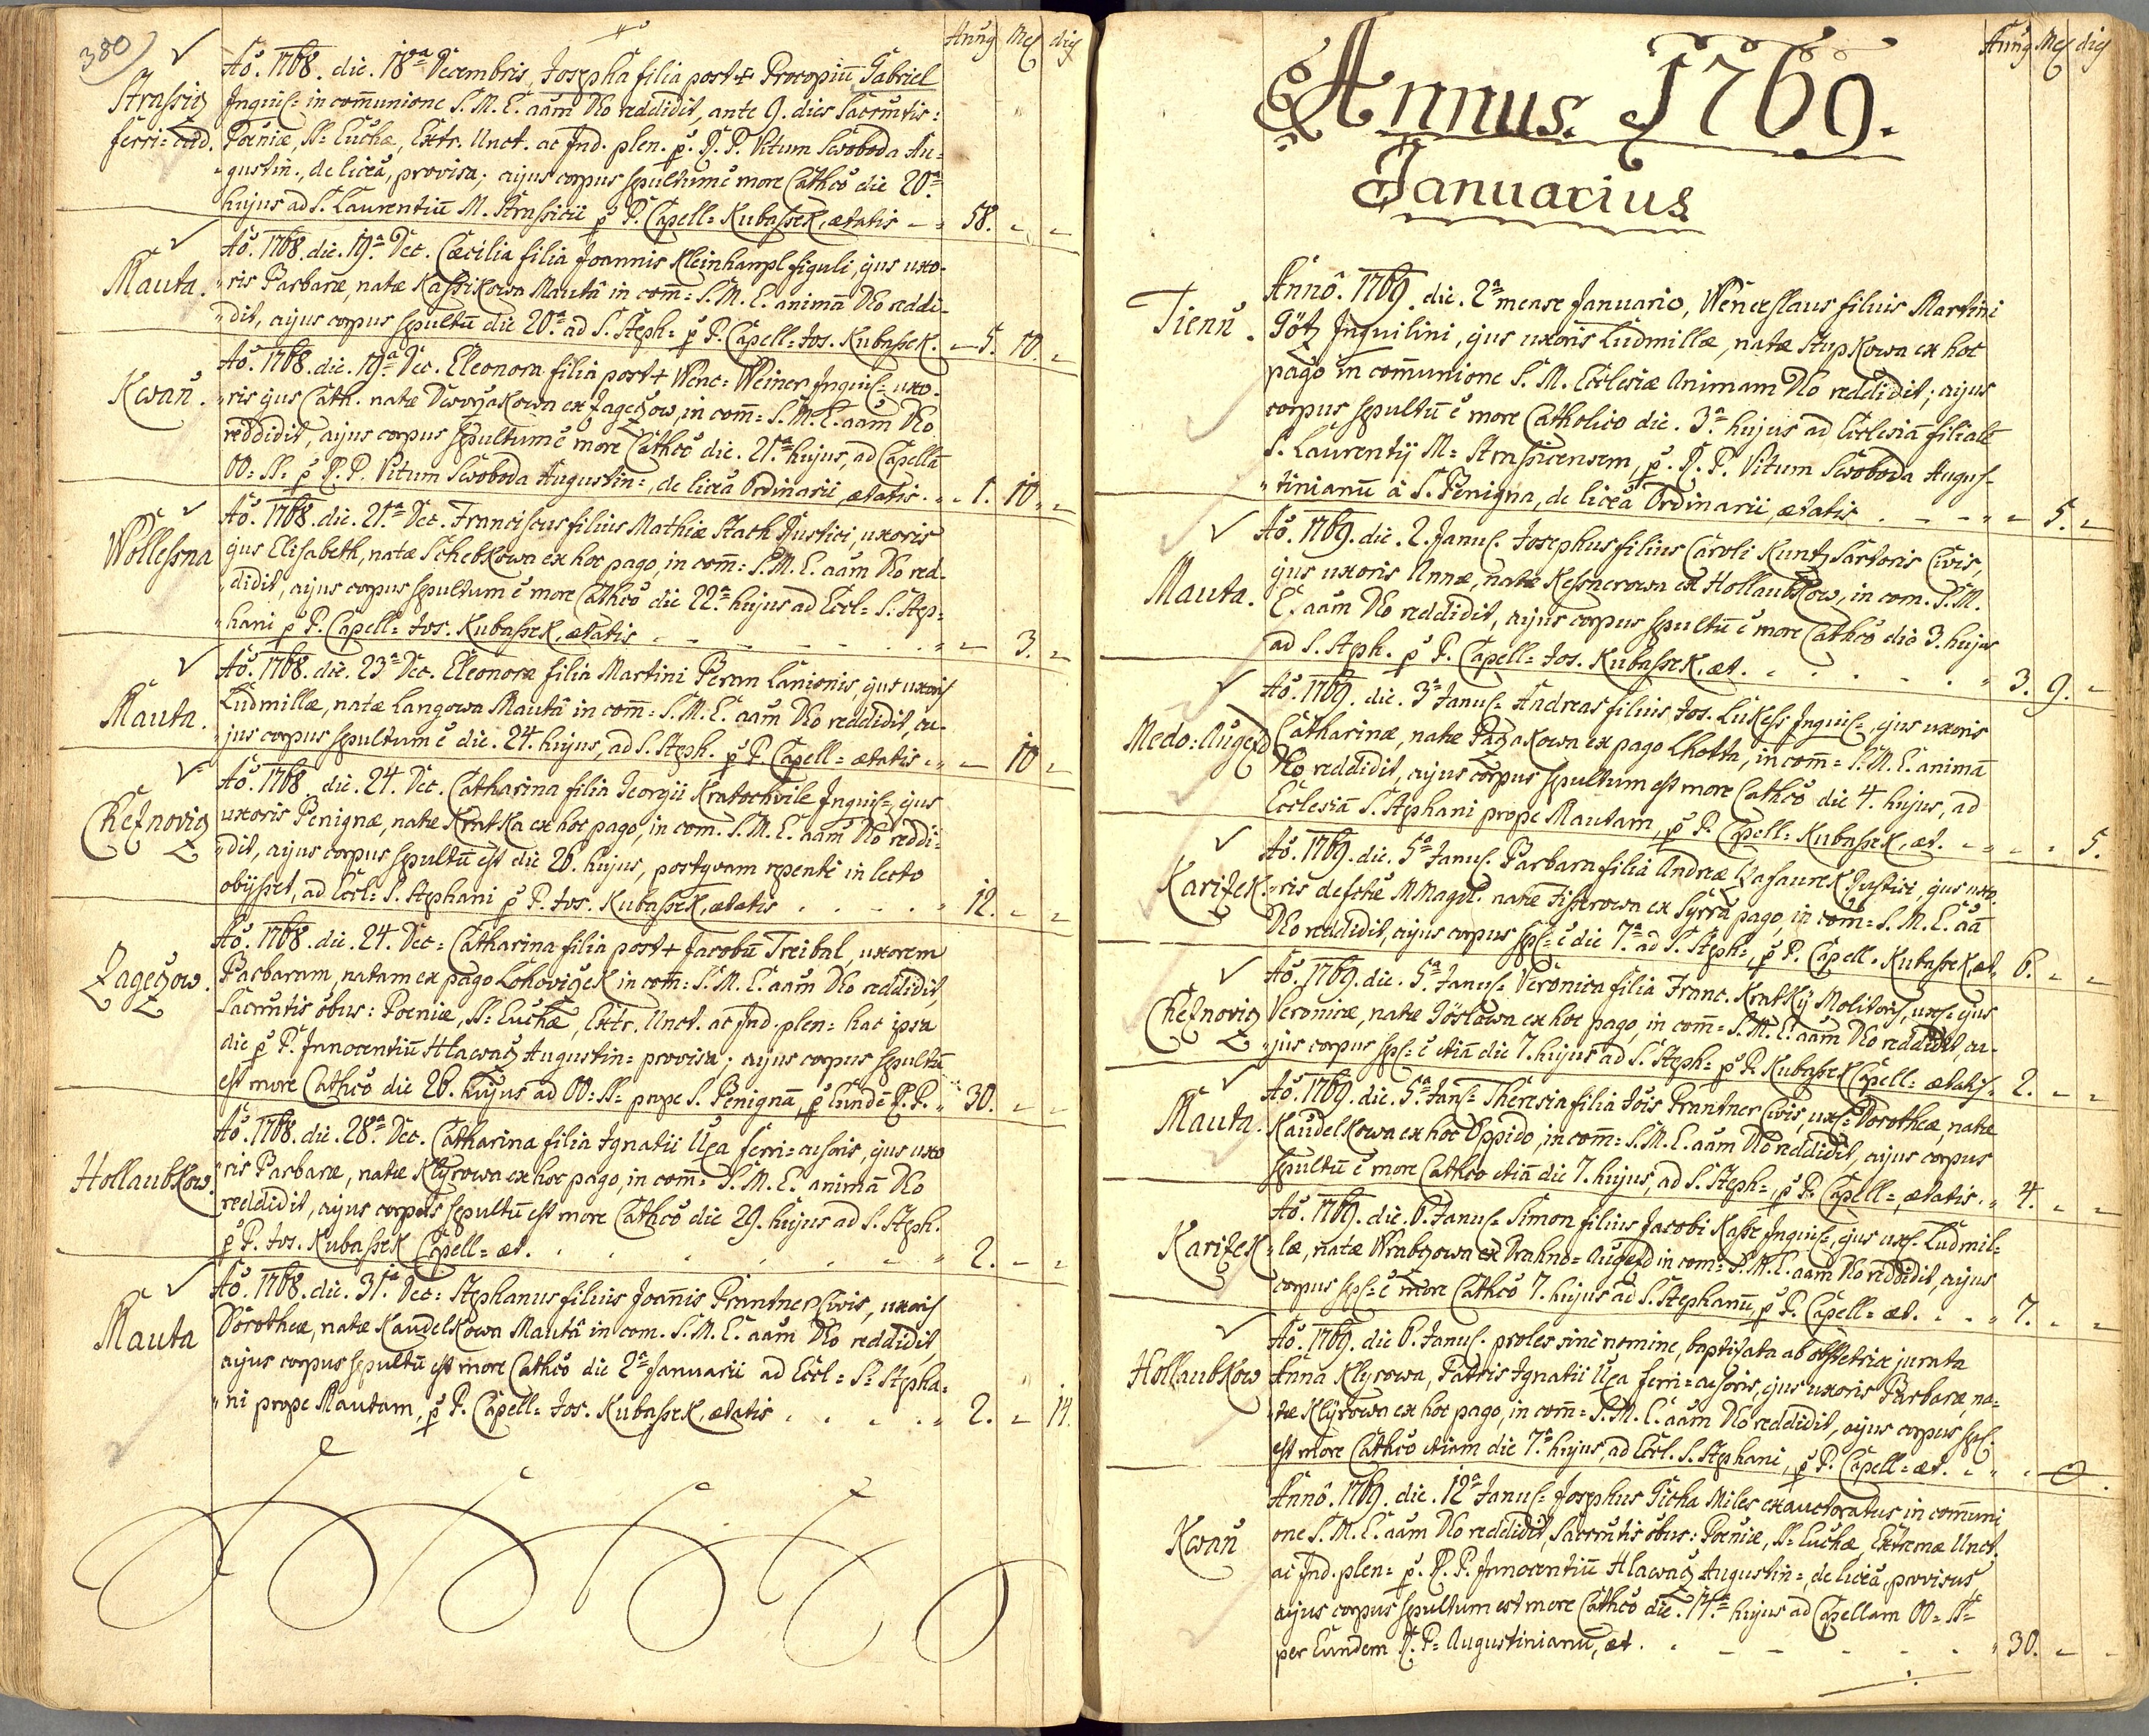 380)
Annq Mēs diēs
Strassitz
ferri=cud.
Aō. 1768. die. 18a Decembris, Josepha filia post + Procopiū Gabriel
Inquil= in com̄unione S. M. E. aām Dō reddidit, ante 9. dies Sacrm̄tis:
Poeniæ, SS= Euchæ, Extr. Unct. ac Ind. plen. p. R. P. Vitum Swoboda Au=
"gustin., de licēa, provisa; cujus corpus sepultum ē more Cathcō die 20a
hujus ad S. Laurentiū M. Strassicii p P. Capell= Kubassek, ætatis - - 58. - -
Mauta.
Aō. 1768. die. 19a Dec. Cæcilia filia Joannis Kleinhampl figuli, ejus uxo-
"ris Barbaræ, natæ Kassikowa Mautâ in com̄= S. M. E. animā Dō reddi-
"dit, cujus corpus sepultū die 20a ad S. Steph= p P. Capell= Jos. Kubassek. - 5. 10. -
Kwaň.
Aō. 1768. die. 19a Dec. Eleonora filia post + Wenc= Weiner Inquil= uxo-
"ris ejus Cath. natæ Dworzakowa ex Zagezow, in com̄= S. M. E. aām Dō
reddidit, cujus corpus sepultum ē more Cathcō die. 21a hujus, ad Capellā
OO= SS= p R. P. Vitum Swoboda Augustin=, de licēa Ordinarii, ætatis. - - 1. 10. -
Wollessna
Aō. 1768. die. 21a Dec. Franciscus filius Mathiæ Stach Justici, uxoris
ejus Elisabeth, natæ Schebkowa ex hoc pago, in com̄= S. M. E. aām Dō red-
"didit, cujus corpus sepultum ē more Cathcō die 22a hujus ad Eccl= S. Step=
"hani p P. Capell= Jos. Kubassek, ætatis . - - - - 3. -
Mauta.
Aō. 1768. die. 23a Dec. Eleonora filia Martini Beran Lanionis, ejus uxoris
Ludmillæ, natæ Langowa Mautâ in com̄= S. M. E. aām Dō reddidit, cu-
"jus corpus sepultum ē die. 24. hujus, ad S. Steph. p P. Capell= ætatis . - - 10 -
Cheznovitz
Aō. 1768. die. 24. Dec. Catharina filia Georgii Kratochvile Inquil=, ejus
uxoris Benignæ, natæ Kratka ex hoc pago, in com. S. M. E. aām Dō reddi=
"dit, cujus corpus sepultū est die 26. hujus, postquam repente in lecto
obijsset, ad Eccl= S. Stephani p P. Jos. Kubassek, ætatis . . . . 12. - -
Zagezow.
Aō. 1768. die. 24. Dec= Catharina filia post + Jacobū Treibal, uxorem
Barbaram, natam ex pago Lohovizek in com̄= S. M. E. aām Dō reddidit
Sacrm̄tis ōbus: Poeniæ, SS= Euchæ, Extr. Unct. ac Ind. plen= hac ipsa
die p P. Innocentiū Hlawatz Augustin= provisa; cujus corpus sepultū
est more Cathcō die 26. hujus ad OO= SS= prope S. Benignā, p Eundē R. P. . 30. - -
Hollaubkow.
Aō. 1768. die. 28a Dec. Catharina filia Ignatii Uza ferri=cusoris, ejus uxo
"ris Barbaræ, natæ Klyrowa ex hoc pago, in com̄= S. M. E. animā Dō
reddidit, cujus corpus sepultū est more Cathcō die 29. hujus ad S. Steph.
p P. Jos. Kubassek Capell= æt. . . . . . - 2. - -
Mauta
Aō. 1768. die. 31a Dec= Stephanus filius Joannis Prantner Civis, uxoris
Dorotheæ, natæ Kaudelkowa Mautâ in com. S. M. E. aām Dō reddidit,
cujus corpus sepultū est more Cathcō die 2a Januarii ad Eccl= S= Stepha=
"ni prope Mautam, p P. Capell= Jos. Kubassek, ætatis . . . . 2. - 14.
Annq Mēs diēs
Annus. 1769.
Januarius
Tienň.
Annô. 1769. die. 2a mense Januario, Wenceslaus filius Martini
Götz Inquilini, ejus uxoris Ludmillæ, natæ Stupkowa ex hoc
pago in com̄unione S. M. Ecclesiæ Animam Dō reddidit; cujus
corpus sepultū ē more Catholico die. 3a hujus ad Ecclesiā filialē
S. Laurentij M= Strassicensem, p. R. P. Vitum Swoboda Augus-
"tinianū à S. Benigna, de licēa Ordinarii, ætatis . - - - - 5. -
Mauta.
Aō. 1769. die. 2. Janu= Josephus filius Caroli Kuntz Sartoris Civis,
ejus uxoris Annæ, natæ Kessnerowa ex Hollaubkow, in com. S. M.
E. aām Dō reddidit, cujus corpus sepultū ē more Cathcō die 3. hujus
ad S. Steph. p P. Capell= Jos. Kubassek, æt. . . . . . 3. 9. -
Medo: Augezd
Aō. 1769. die. 3a Janu= Andreas filius Jos. Lukess Inquil=, ejus uxoris
Catharinæ, natæ Pazakowa ex pago Lhotta, in com̄= S. M. E. animā
Dō reddidit, cujus corpus sepultum est more Cathcō die 4. hujus, ad
Ecclesiā S. Stephani prope Mautam, p P. Capell= Kubassek, æt. - - - 5.
Karizek.
Aō. 1769. die. 5a Janu= Barbara filia Andreæ Zasaurek Justici ejus uxo-
"ris defctæ M Magdl. natæ Fisserowa ex Syrra pago, in com̄= S. M. E. aā
Dō reddidit, cujus corpus spl= ē die 7a ad S. Steph=, p P. Capell= Kubassek, æt. 6. - -
Cheznovitz
Aō. 1769. die. 5a Janu= Veronica filia Franc. Kratky Molitoris, uxs= ejus
Veronicæ, natæ Göslowa ex hoc pago, in com̄= S. M. E. aām Dō reddidit, cu-
"jus corpus spl= ē etiā die 7. hujus ad S. Steph= p P. Kubassek Capell= ætatis= 2. - -
Mauta.
Aō. 1769. die. 5a Jan= Theresia filia Jōis Prantner Civis, uxs= Dorotheæ, natæ
Kaudelkowa ex hoc Oppido, in com̄= S. M. E. aām Dō reddidit, cujus corpus
sepultū ē more Cathco etiā die 7. hujus, ad S. Steph=, p P. Capell=, ætatis. . 4. - -
Karizek
Aō. 1769. die. 6. Janu= Simon filius Jacobi Kasse Inquil=, ejus uxs= Ludmil=
"læ, natæ Wrabzowa ex Drahno= Augezd in com= S. M. E. aām Dō reddidit, cujus
corpus spl= ē more Cathcō 7. hujus ad S. Stephanū, p P. Capell= æt. . . . 7. - -
Hollaubkow
Aō. 1769. die 6. Janu= proles sine nomine, baptizata ab obstetrice jurata
Anna Klyrowa, Patris Ignatii Uza ferri=cusoris, ejus uxoris Barbaræ, na=
"tæ Klyrowa ex hoc pago, in com̄= S. M. E. aām Dō reddidit, cujus corpus spl=
est more Cathcō etiam die 7a hujus, ad Eccl. S. Stephani, p P. Capell= æt. - - 0.
Kwaň
Annô. 1769. die. 12a Janu= Josephus Ticha Miles exauctoratus in com̄uni
one S. M. E. aām Dō reddidit, Sacrm̄tis ōbus: Poeniæ, SS= Euchæ, Extremæ Unct.
ac Ind. plen= p. R. P. Innocentiū Hlawatz Augustin=, de licēa, provisus,
cujus corpus sepultum est more Cathcō die. 14a hujus ad Capellam OO= SS=
per Eundem R. P= Augustinianū, æt. . - - - - 30. - -